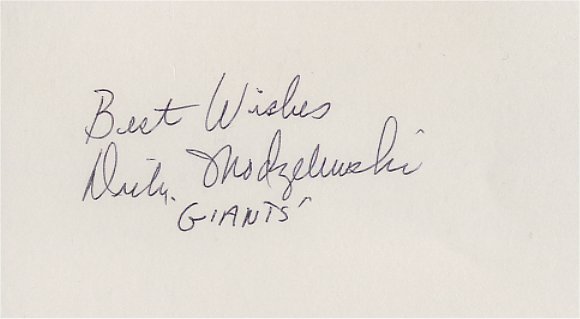 Best Wishes
Dick Modzelewski
"GIANTS"